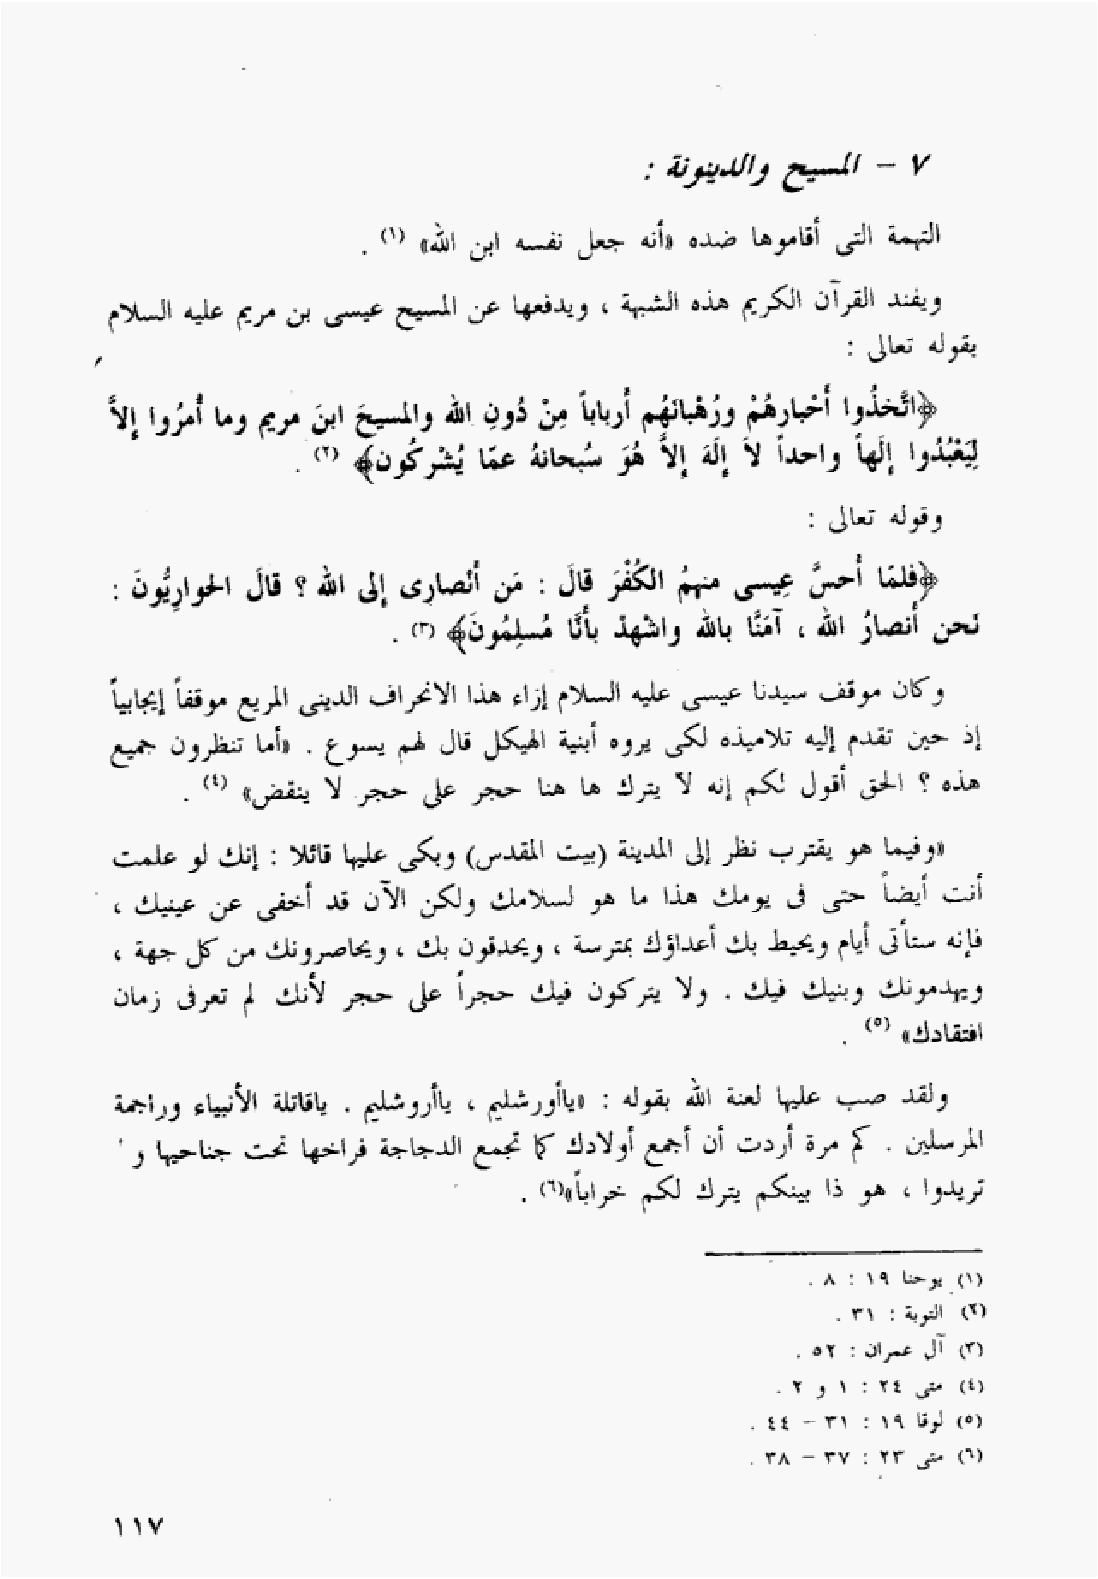 ٧ – المسيح والدينونة :
التهمة التى أقاموها ضده «أنه جعل نفسه ابن الله» (١) .
ويفند القرآن الكريم هذه الشبهة ، ويدفعها عن المسيح عيسى بن مريم عليه السلام
بقوله تعالى :
﴿اتَّخذُوا أَحْبارهُمْ ورُهْبانَهُم أرباباً مِنْ دُونِ الله والمسيحَ ابنَ مريم وما أُمرُوا إلاَّ
لِيَعْبُدُوا إلَهاً واحداً لاَ إلَهَ إلاَّ هُوَ سُبحانهُ عمّا يُشْركُون﴾ (٢) .
وقوله تعالى :
﴿فلمّا أحسَّ عِيسى منهمُ الكُفْرَ قالَ : مَن أنْصارِى إلى الله ؟ قالَ الحواريُّونَ :
نَحن أنصارُ الله ، آمَنَّا بالله واشْهدْ بأنَّا مُسلِمُونَ﴾ (٣) .
وكان موقف سيدنا عيسى عليه السلام إزاء هذا الانحراف الدينى المريع موقفاً إيجابياً
إذ حين تقدم إليه تلاميذه لكى يروه أبنية الهيكل قال لهم يسوع . «أما تنظرون جميع
هذه ؟ الحق أقول لكم إنه لا يترك ها هنا حجر على حجر لا ينقض» (٤) .
«وفيما هو يقترب نظر إلى المدينة (بيت المقدس) وبكى عليها قائلا : إنك لو علمت
أنت أيضاً حتى فى يومك هذا ما هو لسلامك ولكن الآن قد أخفى عن عينيك ،
فإنه ستأتى أيام ويحيط بك أعداؤك بمترسة ، ويحدقون بك ، ويحاصرونك من كل جهة ،
ويهدمونك وبنيك فيك . ولا يتركون فيك حجراً على حجر لأنك لم تعرفى زمان
افتقادك» (٥) .
ولقد صب عليها لعنة الله بقوله : «ياأورشليم ، ياأروشليم . ياقاتلة الأنبياء وراجمة
المرسلين . كم مرة أردت أن أجمع أولادك كما تجمع الدجاجة فراخها تحت جناحيها و
تريدوا ، هو ذا بينكم يترك لكم خراباً»(٦) .
(١) يوحنا ١٩ : ٨ .
(٢) التوبة : ٣١ .
(٣) آل عمران : ٥٢ .
(٤) متى ٢٤ : ١ و ٢ .
(٥) لوقا ١٩ : ٣١ – ٤٤ .
(٦) متى ٢٣ : ٣٧ – ٣٨ .
١١٧